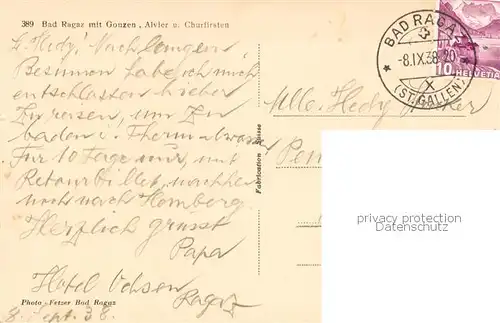 389 Bad Ragaz mit Gonzen, Alvier u. Churfirsten
L. Hedy! Nach langem
Besinnen habe ich mich
entschlossen hieher
zu reisen, um zu
baden i. Thermalwasser
Für 10 Tage nur, mit
Retourbillet, nachher
noch nach Homberg.
Herzlich grüsst
Papa
Hotel Ochsen
Ragaz
Photo - Fetzer Bad Ragaz
8. Sept. 38.
Fabrication Suisse
BAD RAGAZ
-8.IX.38-20
X
(ST. GALLEN)
10 HELVETIA
Mlle. Hedy
Pen
privacy protection